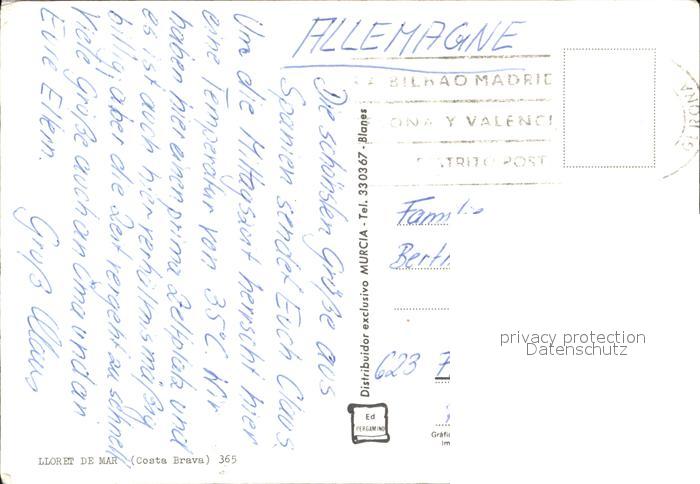 ALLEMAGNE
Die schönsten Grüße aus
Spanien sendet Euch Claus,
Um die Mittagszeit herrscht hier
eine Temperatur von 35°C. Wir
haben hier einen prima Zeltplatz und
es ist auch hier verhältnismäßig
billig, aber die Zeit vergeht zu schnell
Viele Grüße auch an Oma und an
Eure Eltern.
Gruß Claus
BILBAO MADRID
ONA Y VALENCI
DISTRITO POST
GERONA
Distribuidor exclusivo MURCIA - Tel. 330367 - Blanes
Familie
Bert
623
privacy protection
Datenschutz
Ed
PERGAMINO
Gráfi
Im
LLORET DE MAR (Costa Brava) 365